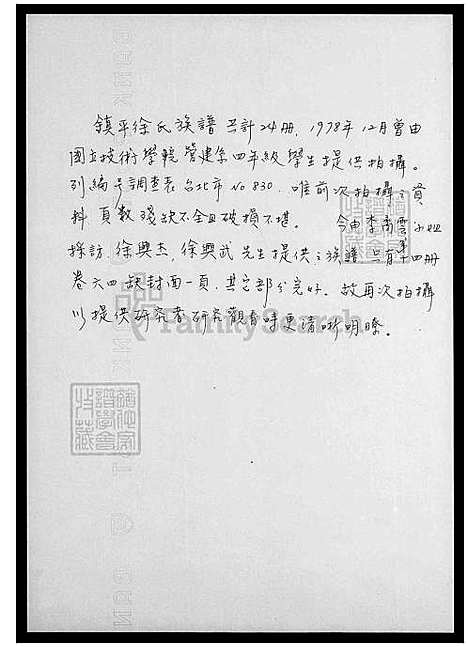 鎮平徐氏族譜 共計24册, 1978年12月曾由
國立技術學院營建系四年級學生提供拍攝。
列編号調查表台北市No 830. 唯前次拍攝之資
料頁數殘缺不全且破損不堪。 今由李喬雲小姐
採訪、徐興杰, 徐興武先生提供之族譜 只有十四册
卷六四缺封面一頁, 其它部分完好。故再次拍攝
以提供研究者研究觀看時更清晰明瞭。
FamilySearch